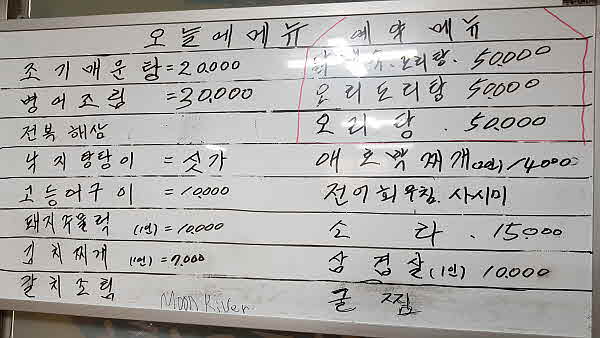 오늘에메뉴
조기매운탕=20.000
병어조림=30.000
전복 해삼
낙지탕탕이=싯가
고등어구이=10,000
돼지주울럭 (1인)=10,000
김치찌개 (1인)=7,000
갈치조림
Moon River
예약메뉴
오리탕. 50.000
오리도리탕 50.000
오리탕. 50.000
애호박찌개(2인)14000
전어회무침. 사시미
소라. 15.000
삼겹살(1인) 10,000
굴찜